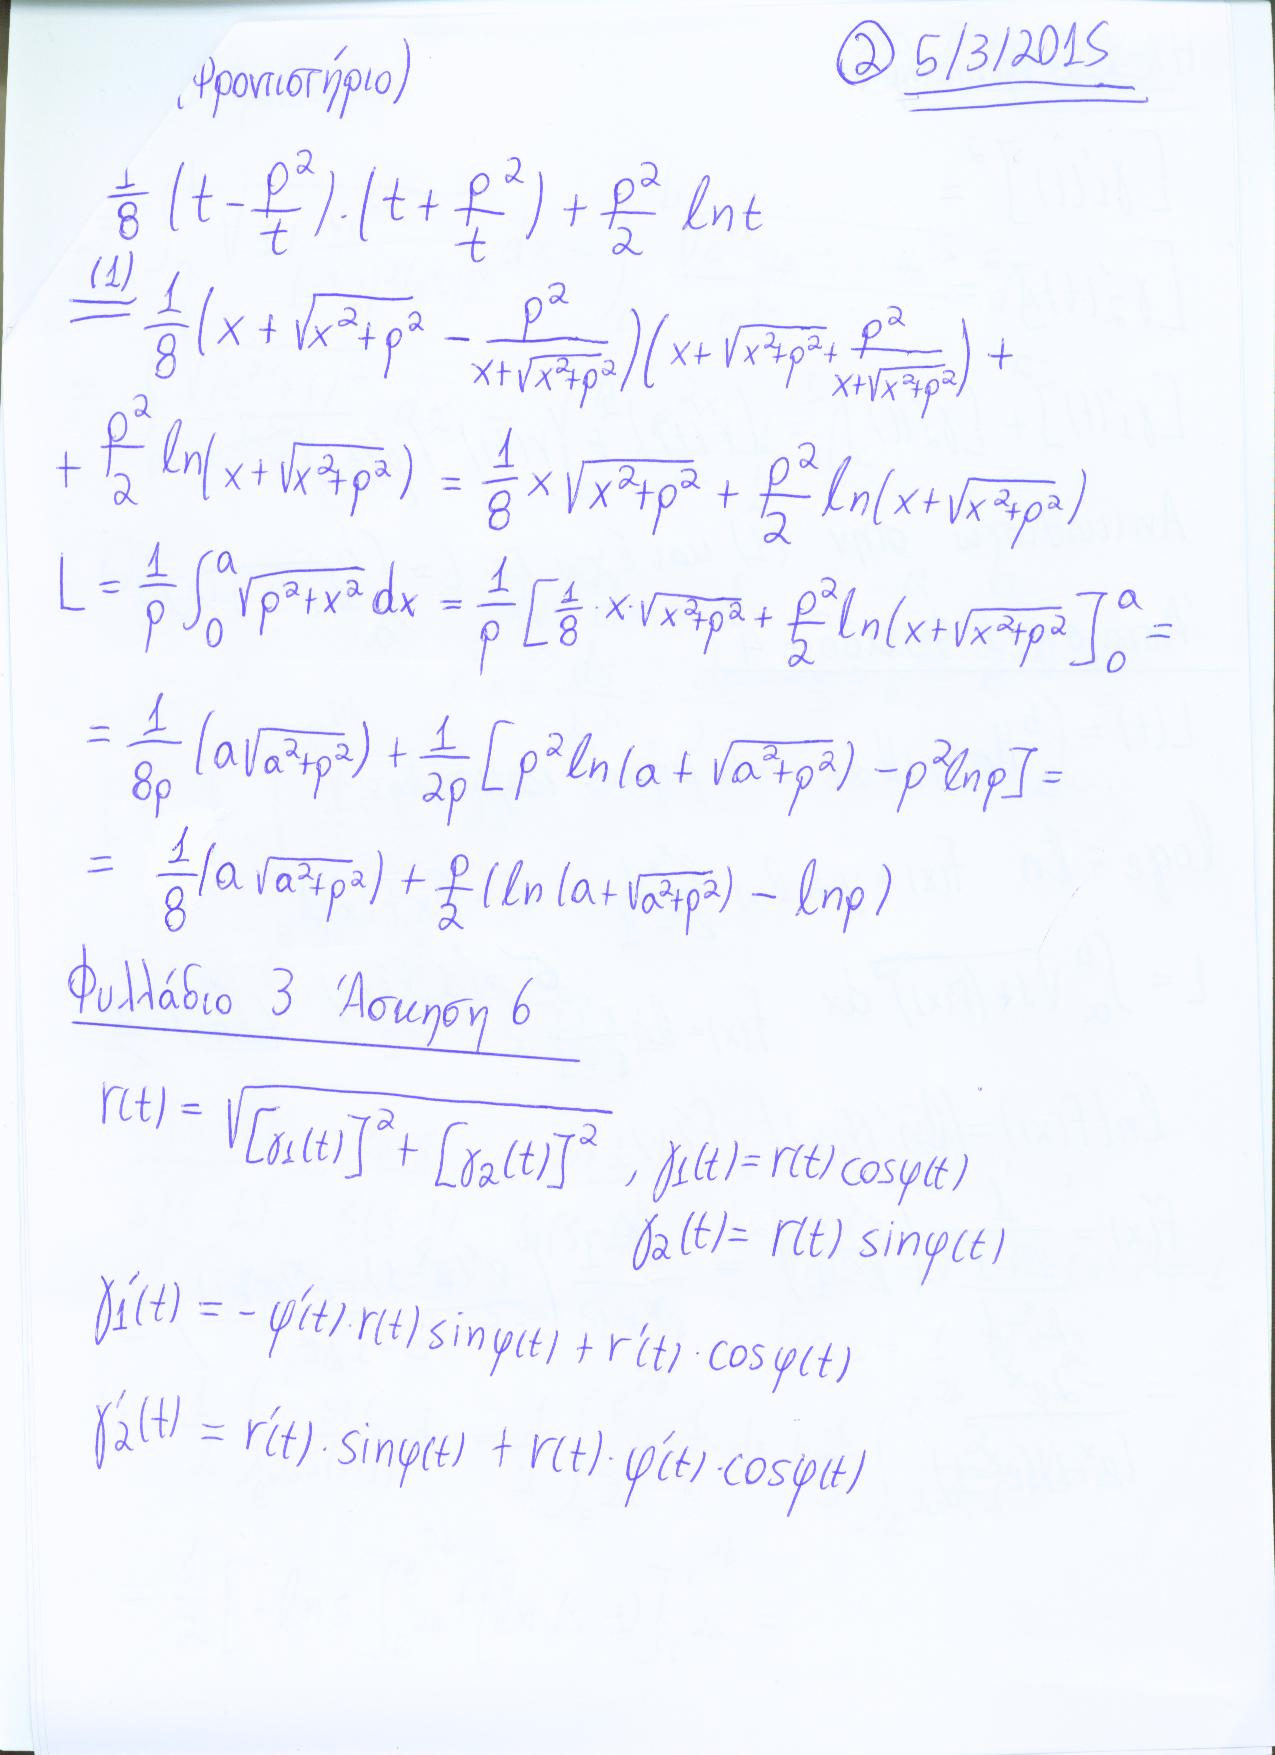 (Φροντιστήριο)
② 5/3/2015
1/8 (t - p²/t)·(t + p²/t) + p²/2 ln t
(1)= 1/8 (x + √(x²+p²) - p²/(x+√(x²+p²)))(x + √(x²+p²) + p²/(x+√(x²+p²))) +
+ p²/2 ln(x + √(x²+p²)) = 1/8 x √(x²+p²) + p²/2 ln(x+√(x²+p²))
L = 1/p ∫₀ᵃ √(p²+x²) dx = 1/p [1/8 · x · √(x²+p²) + p²/2 ln(x+√(x²+p²) ]₀ᵃ =
= 1/8p (a√(a²+p²)) + 1/2p [p² ln(a + √(a²+p²)) - p² ln p] =
= 1/8 (a √(a²+p²)) + p/2 (ln (a+√(a²+p²)) - ln p)
Φυλλάδιο 3 Άσκηση 6
r(t) = √([γ₁(t)]² + [γ₂(t)]²) , γ₁(t) = r(t) cosφ(t)
γ₂(t) = r(t) sinφ(t)
γ₁'(t) = - φ'(t)·r(t) sinφ(t) + r'(t) · cosφ(t)
γ₂'(t) = r'(t) · sinφ(t) + r(t) · φ'(t) · cosφ(t)